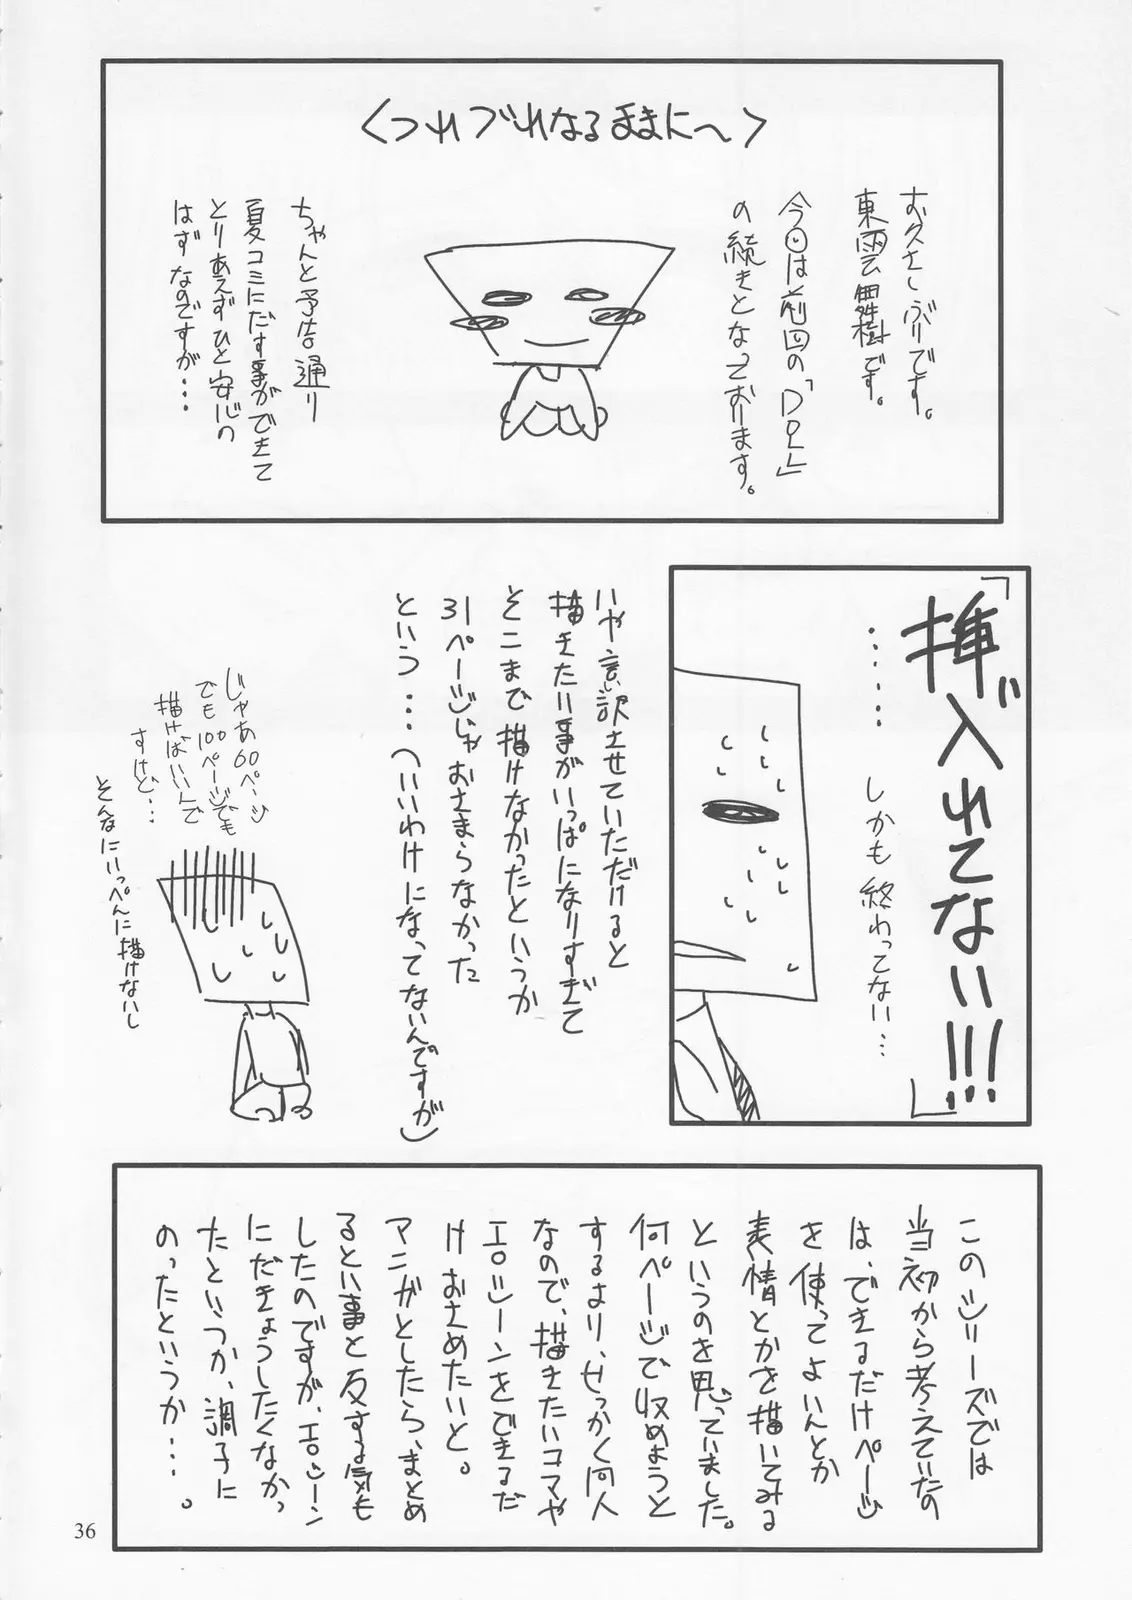 〈つれづれなるままに〜〉
お久しぶりです。
東雲舞樹です。
今回は前回の「DL」
の続きとなっております。
ちゃんと予告通り
夏コミにだす事ができて
とりあえずひと安心の
はずなのですが…
「挿入れてない!!!」
……… しかも終わってない…
いや言い訳させていただけると
描きたい事がいっぱいになりすぎて
そこまで描けなかったというか
31ページじゃおさまらなかった
という…(いいわけになってないんですが)
じゃあ60ページ
でも100ページでも
描けばいいんで
すけど…
そんなにいっぺんに描けないし
このシリーズでは
当初から考えていたの
は、できるだけページ
を使ってよいんとか
表情とかを描いてみる
というのを思っていました。
何ページで収めようと
するより、せっかく同人
なので、描きたいコマや
エロシーンをできるだ
けおさめたいと。
マンガとしたら、まとめ
るとい事と反する気も
したのですが、エロシーン
にだきょうしたくなかっ
たというか、調子に
のったというか…。
36